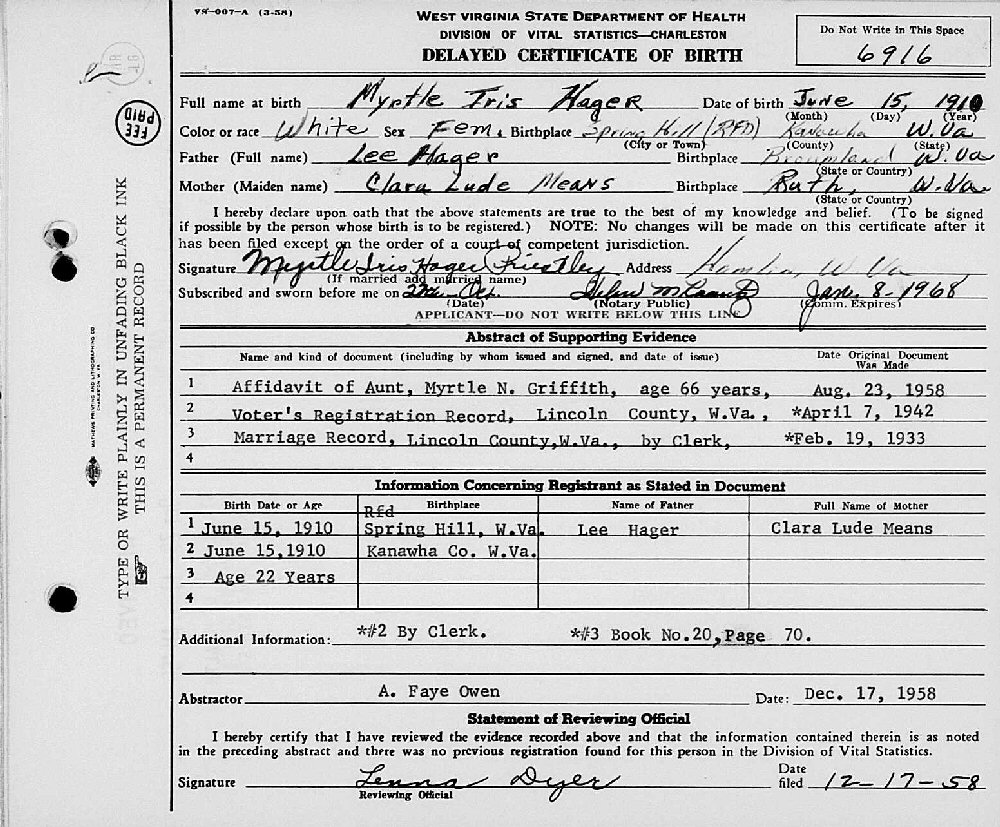 VS-007-A (3-58)
WEST VIRGINIA STATE DEPARTMENT OF HEALTH
DIVISION OF VITAL STATISTICS—CHARLESTON
DELAYED CERTIFICATE OF BIRTH
Do Not Write in This Space
6916
FEE PAID
Full name at birth Myrtle Iris Hager Date of birth June 15, 1910
(Month) (Day) (Year)
Color or race White Sex Fem. Birthplace Spring Hill (RFD) Kanawha W.Va
(City or Town) (County) (State)
Father (Full name) Lee Hager Birthplace Brownland W.Va
(State or Country)
Mother (Maiden name) Clara Lude Means Birthplace Ruth, W.Va
(State or Country)
I hereby declare upon oath that the above statements are true to the best of my knowledge and belief. (To be signed
if possible by the person whose birth is to be registered.) NOTE: No changes will be made on this certificate after it
has been filed except on the order of a court of competent jurisdiction.
Signature Myrtle Iris Hager Priestley Address Hamlin, W Va
(If married add married name)
Subscribed and sworn before me on Jan. 8-1968
(Date) (Notary Public) (Comm. Expires)
APPLICANT—DO NOT WRITE BELOW THIS LINE
Abstract of Supporting Evidence
Name and kind of document (including by whom issued and signed, and date of issue) Date Original Document
Was Made
1 Affidavit of Aunt, Myrtle N. Griffith, age 66 years, Aug. 23, 1958
2 Voter's Registration Record, Lincoln County, W.Va., *April 7, 1942
3 Marriage Record, Lincoln County,W.Va., by Clerk, *Feb. 19, 1933
4
Information Concerning Registrant as Stated in Document
Birth Date or Age Birthplace Name of Father Full Name of Mother
Rfd
1 June 15, 1910 Spring Hill, W.Va. Lee Hager Clara Lude Means
2 June 15,1910 Kanawha Co. W.Va.
3 Age 22 Years
4
Additional Information: *#2 By Clerk. *#3 Book No.20,Page 70.
Abstractor A. Faye Owen Date: Dec. 17, 1958
Statement of Reviewing Official
I hereby certify that I have reviewed the evidence recorded above and that the information contained therein is as noted
in the preceding abstract and there was no previous registration found for this person in the Division of Vital Statistics.
Signature Lenna Dyer Date
filed 12-17-58
Reviewing Official
TYPE OR WRITE PLAINLY IN UNFADING BLACK INK
THIS IS A PERMANENT RECORD
MATHEWS PRINTING AND LITHOGRAPHING CO
CHARLESTON W VA